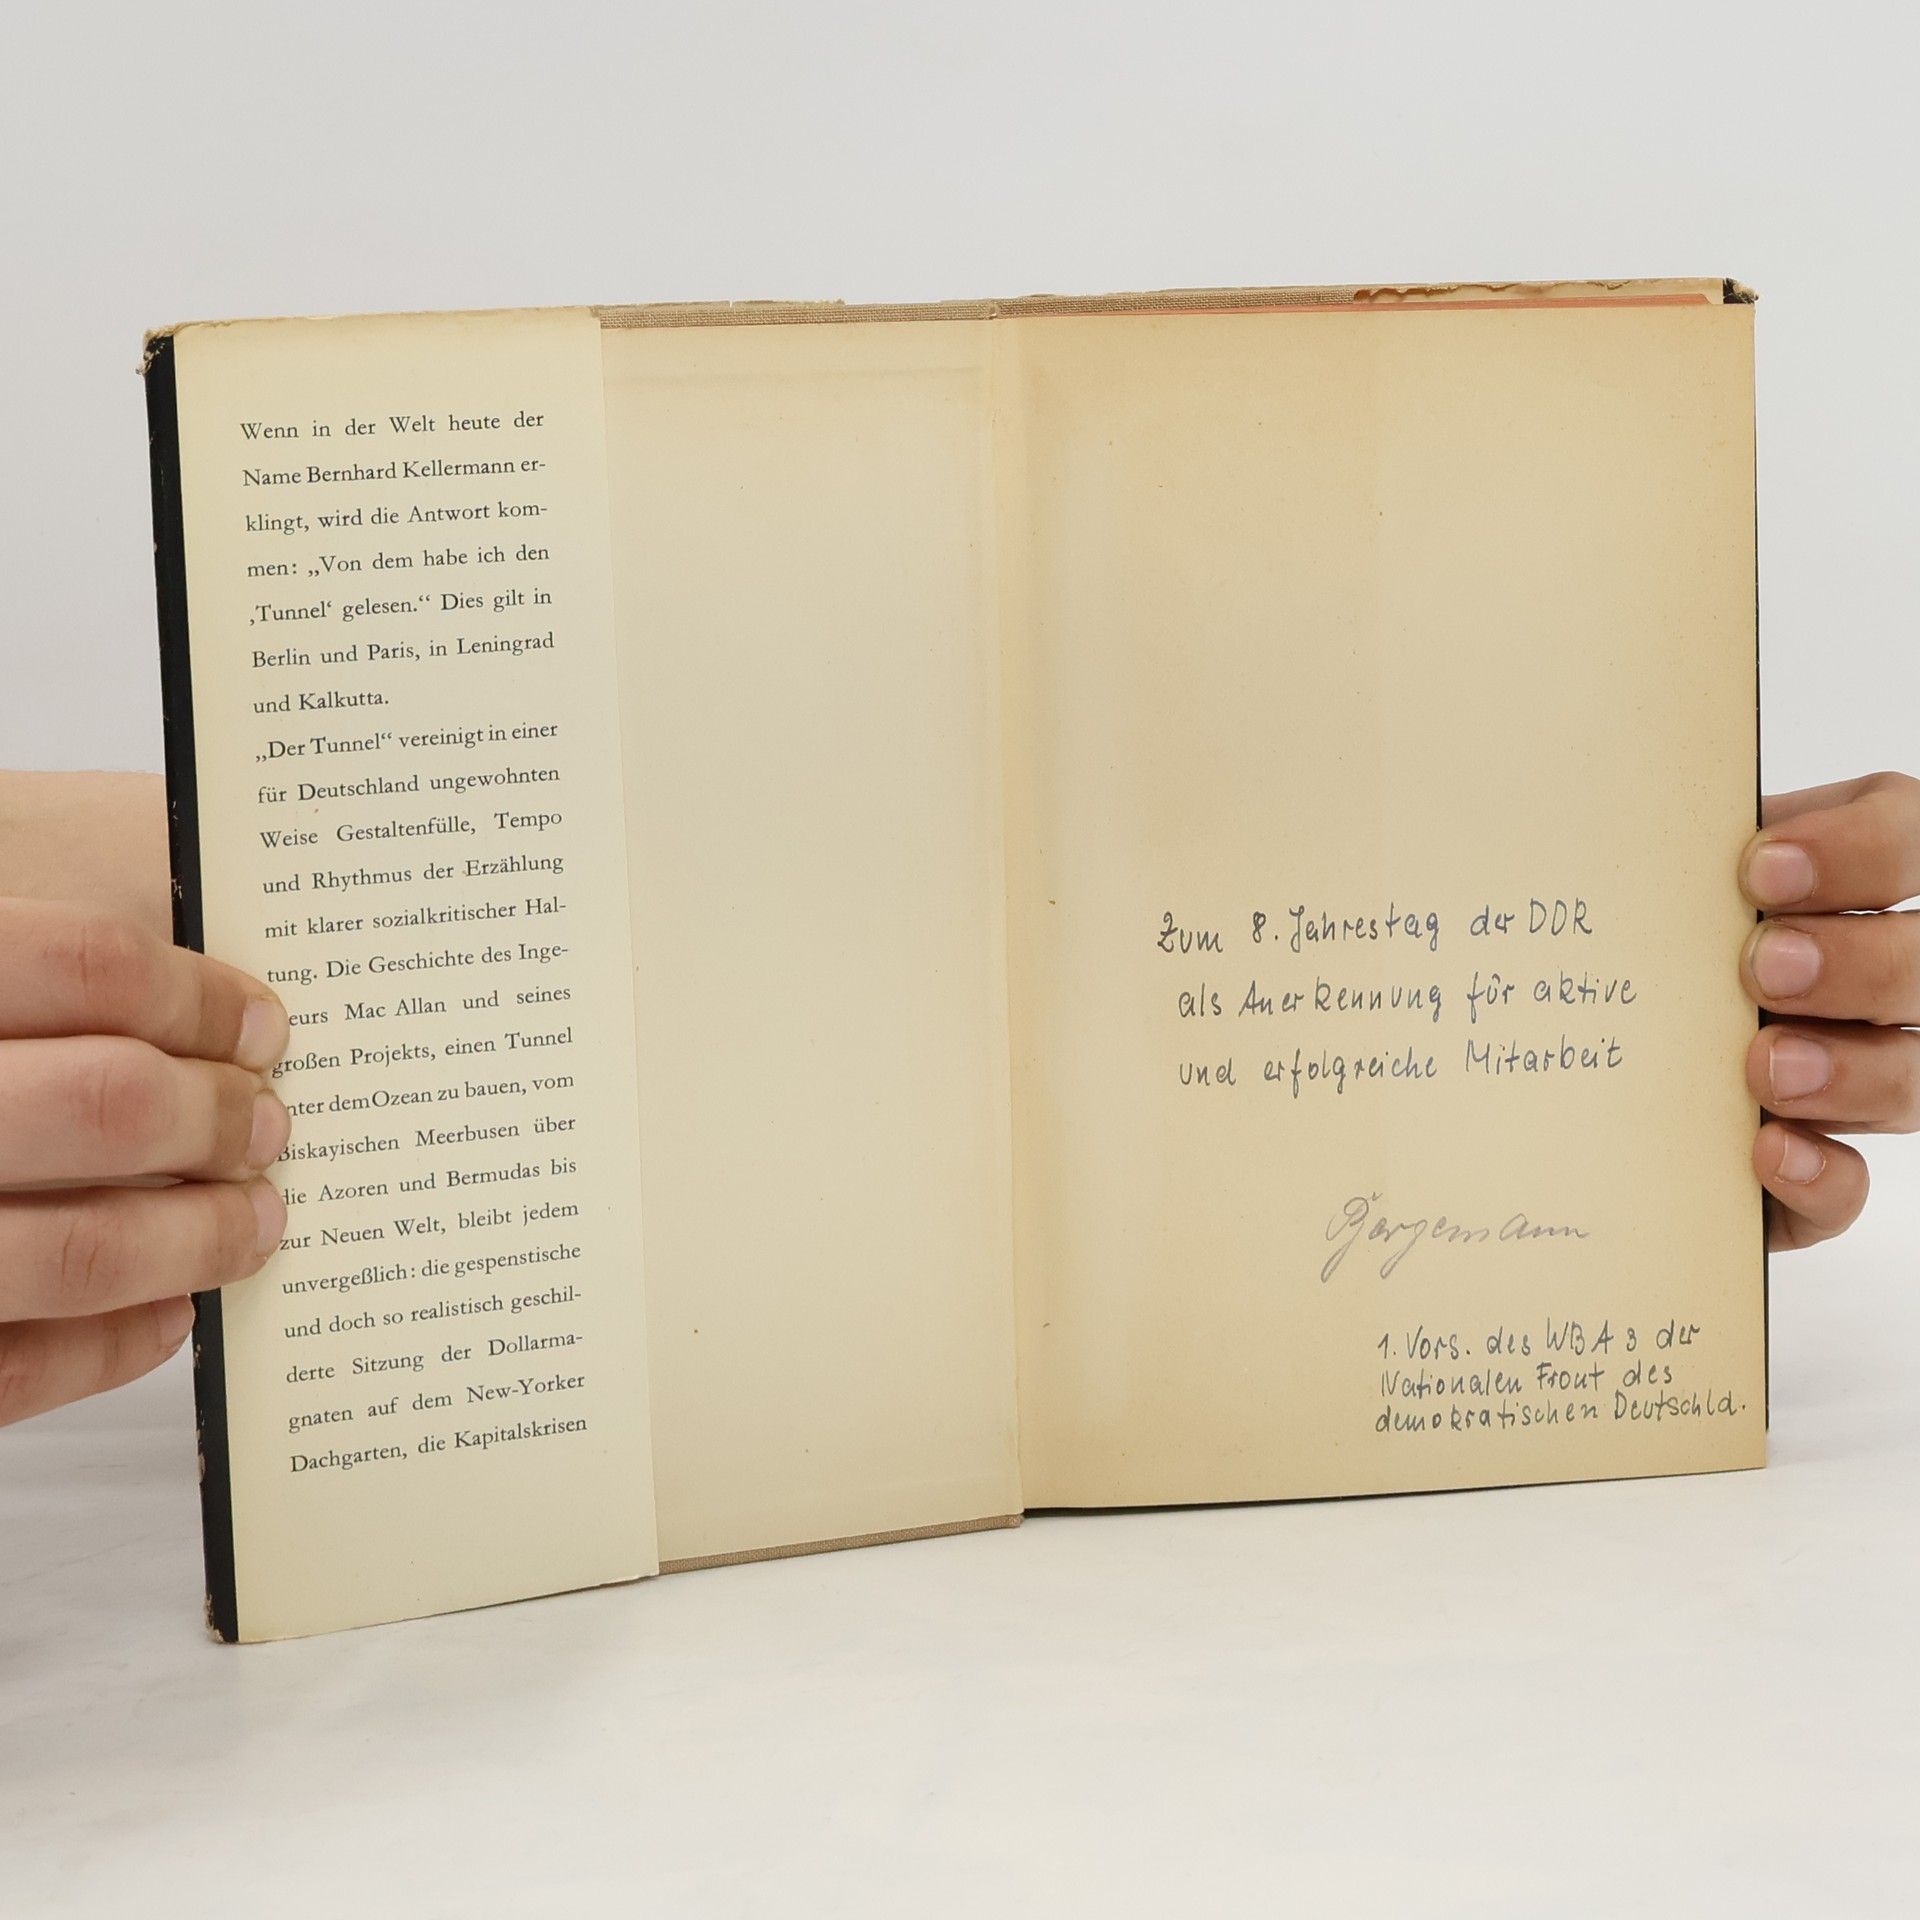 Wenn in der Welt heute der
Name Bernhard Kellermann er-
klingt, wird die Antwort kom-
men: „Von dem habe ich den
‚Tunnel‘ gelesen.“ Dies gilt in
Berlin und Paris, in Leningrad
und Kalkutta.
„Der Tunnel“ vereinigt in einer
für Deutschland ungewohnten
Weise Gestaltenfülle, Tempo
und Rhythmus der Erzählung
mit klarer sozialkritischer Hal-
tung. Die Geschichte des Inge-
eurs Mac Allan und seines
großen Projekts, einen Tunnel
nter dem Ozean zu bauen, vom
Biskayischen Meerbusen über
die Azoren und Bermudas bis
zur Neuen Welt, bleibt jedem
unvergeßlich: die gespenstische
und doch so realistisch geschil-
derte Sitzung der Dollarma-
gnaten auf dem New-Yorker
Dachgarten, die Kapitalskrisen
Zum 8. Jahrestag der DDR
als Anerkennung für aktive
und erfolgreiche Mitarbeit
Bergemann
1. Vors. des WBA 3 der
Nationalen Front des
demokratischen Deutschld.